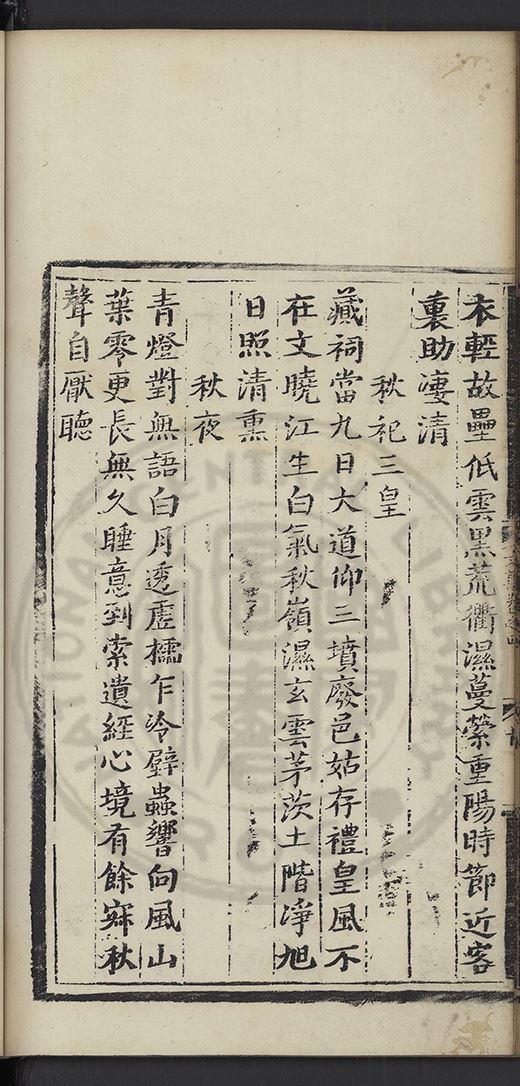 衣輕故壘低雲黑荒衢濕蔓縈重陽時節近客
裏助凄清
秋祀三皇
藏祠當九日大道仰三墳廢邑姑存禮皇風不
在文曉江生白氣秋嶺濕玄雲茅茨土階凈旭
日照清熏
秋夜
青燈對無語白月透虛櫺乍冷壁蟲響向風山
葉零更長無久睡意到索遺經心境有餘寂秋
聲自厭聽